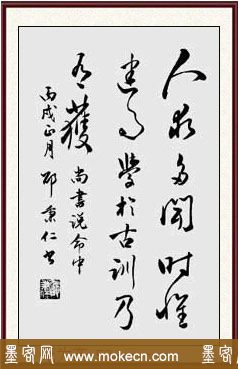 人求多闻时惟
建事学於古训乃
有獲 尚書说命中
丙戌正月 邵秉仁书
墨客网 www.mokecn.com 墨客